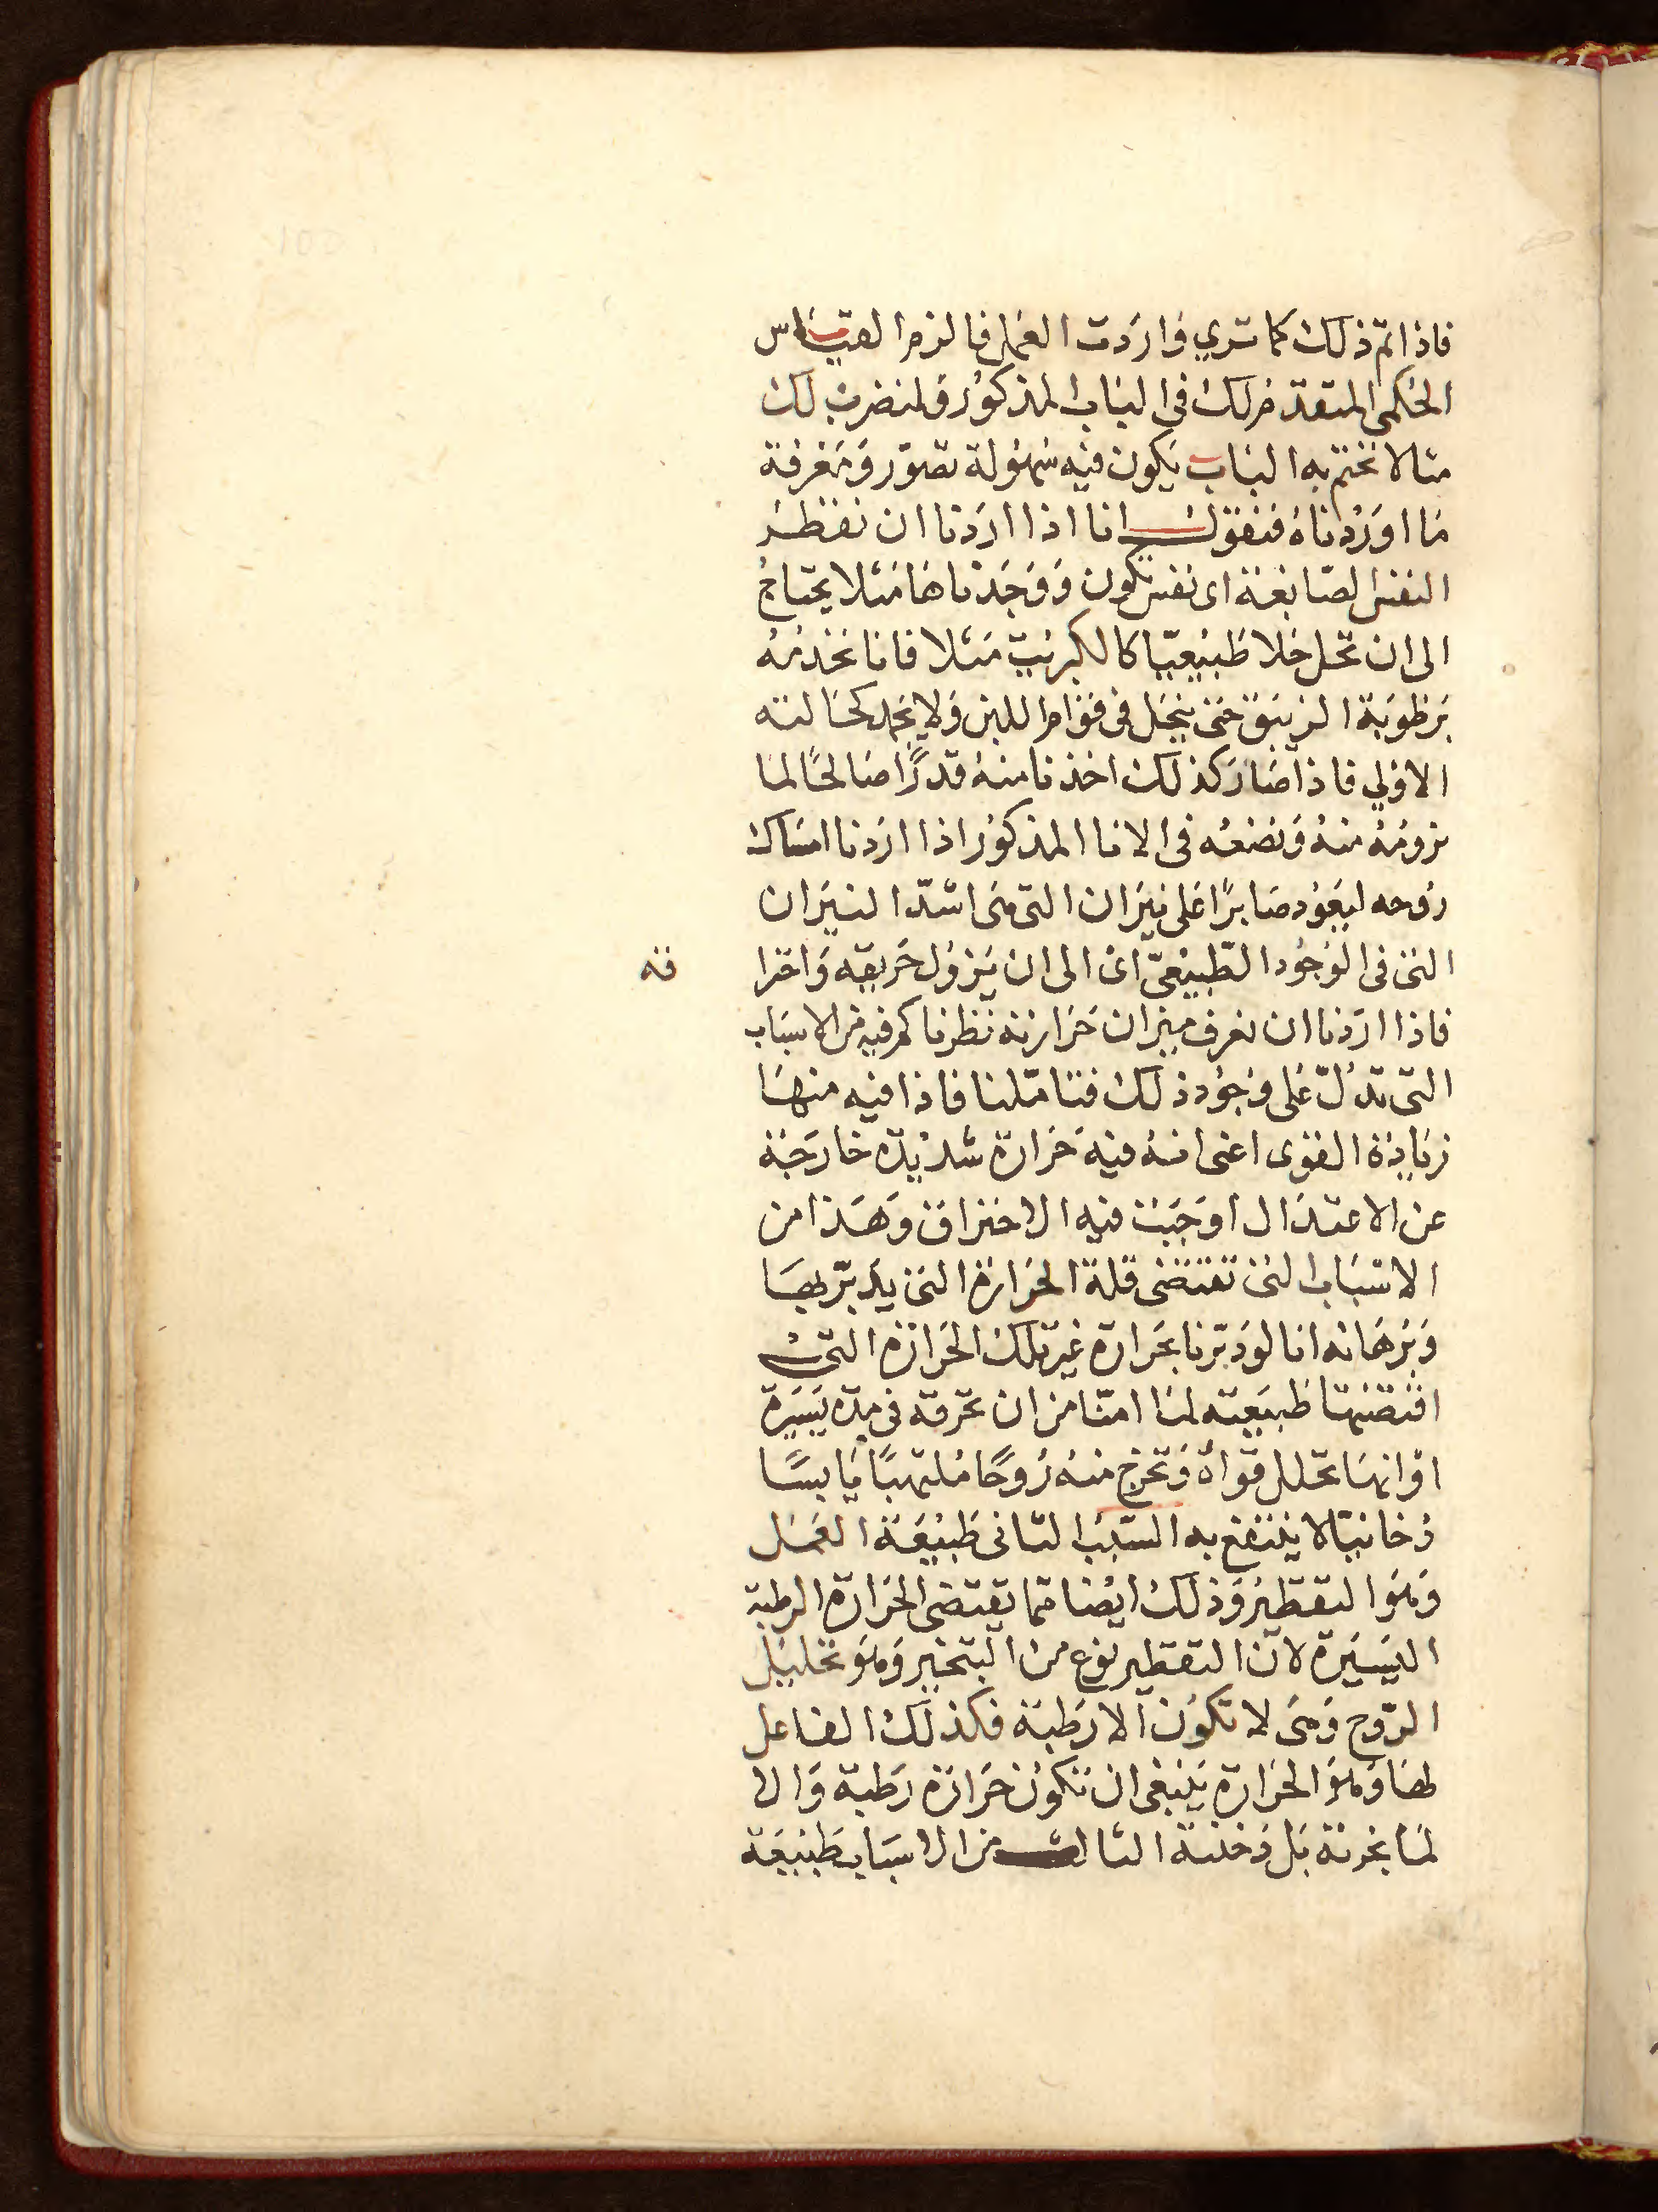 فاذا تم ذلك كما تري وَاردت العَمل فالزم القيَاس
الحُكمى المتقدم لك فى البَاب المذكوُر وَلنضربْ لك
مثالا نختم به البَاب يَكون فيْه سُهوُلة تصوّر وَمَعْرفة
مَا اوَرْدناهُ فنقوَل انا اذا ارَدنا ان نقطر
النفس الصّابغة اى نفس تكون وَوَجَدْناهَا مَثلا يحتاجُ
الى ان تحل حَلا طَبيْعيّا كالكبريْت مَثلا فانا نخذمُهُ
برَطوبَة الزيبَق حَتى ينحَل فى قوَام اللبن وَلا يجمد كحَالته
الاوْلي فاذا صَارَ كذلك اخذنا منهُ قدرًا صَالحًا لمَا
نرومُهُ منهُ وَنضعُه فى الانا المذكوُر اذا ارَدنا امسَاك
روُحه ليَعوُد صَابرًا عَلى نيرَان التى هىَ اشدّ النيَران
التى فى الوُجوُد الطّبيْعىّ اىْ الى ان يَزوُل حَريقه وَاحترا قه
فاذا ارَدنا ان نعرف ميزان حَرَارته نظرنا كم فيه من الاسبَاب
التى تدُلّ عَلى وُجوُد ذلك فتامّلنا فاذا فيه منهَا
زيَادة القوى اعنى انهُ فيْهِ حَرَارة شديْدة خارجَة
عن الاعتدَال اوجَبَت فيه الاحترَاق وَهَذا من
الاسْبَاب التى تقتضى قلة الحَرَارة التى يدَبّر بهَا
وَبُرهَانه انا لوْ دَبّرنا بحَرَارة غيَر تلك الحَرَارة التىْ
اقتضتهَا طبيعَته لمَا امنّا من ان تحرقه فى مدة يَسيَرة
اوْ انهَا تحلل قوَاهُ وَتخرج منهُ رُوحًا مُلتهبًا يَابسًا
دُخانيّا لا ينتفع به السّبَب الثانى طَبيْعَة العَمَل
وَهوَ التقطير وَذلك ايْضا ممّا يَقتضى الحَرَارة الرطبة
اليَسيَرة لانّ التقطير نوع من التبخير وَهوَ تحليَل
الرّوح وَهىَ لا تكوُن الا رَطبَة فكذلك الفاعل
لهَا وَهوَ الحَرَارة يَنبغى ان تكوُن حَرَارة رَطبة وَالا
لمَا بخرتة بَل دَخنتهُ الثالث من الاسبَاب طَبيْعَة